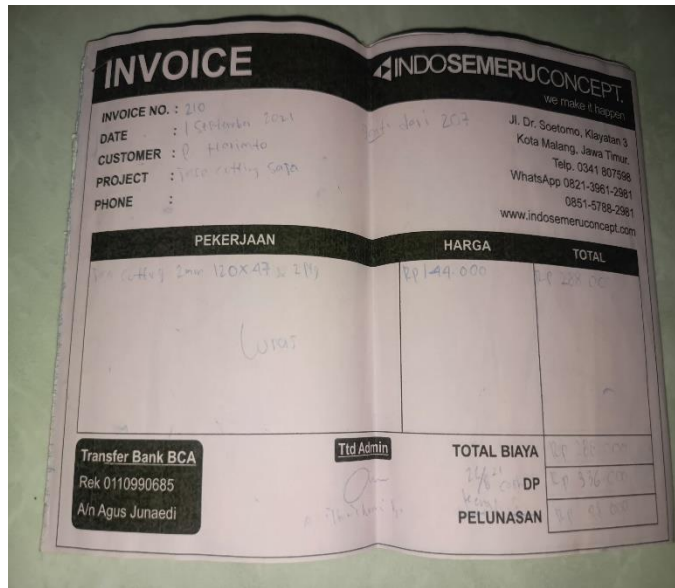 INVOICE
INDOSEMERUCONCEPT.
we make it happen
INVOICE NO. : 210
DATE : 1 September 2021
CUSTOMER : P. Harianto
PROJECT : Jasa cutting saja
PHONE :
dari 207
Jl. Dr. Soetomo, Klayatan 3
Kota Malang, Jawa Timur.
Telp. 0341 807598
WhatsApp 0821-3961-2981
0851-5788-2981
www.indosemeruconcept.com
PEKERJAAN HARGA TOTAL
cutting 2mm 120x47 Rp 144.000
Lunas
Transfer Bank BCA
Rek 0110990685
A/n Agus Junaedi
Ttd Admin
TOTAL BIAYA
DP
PELUNASAN